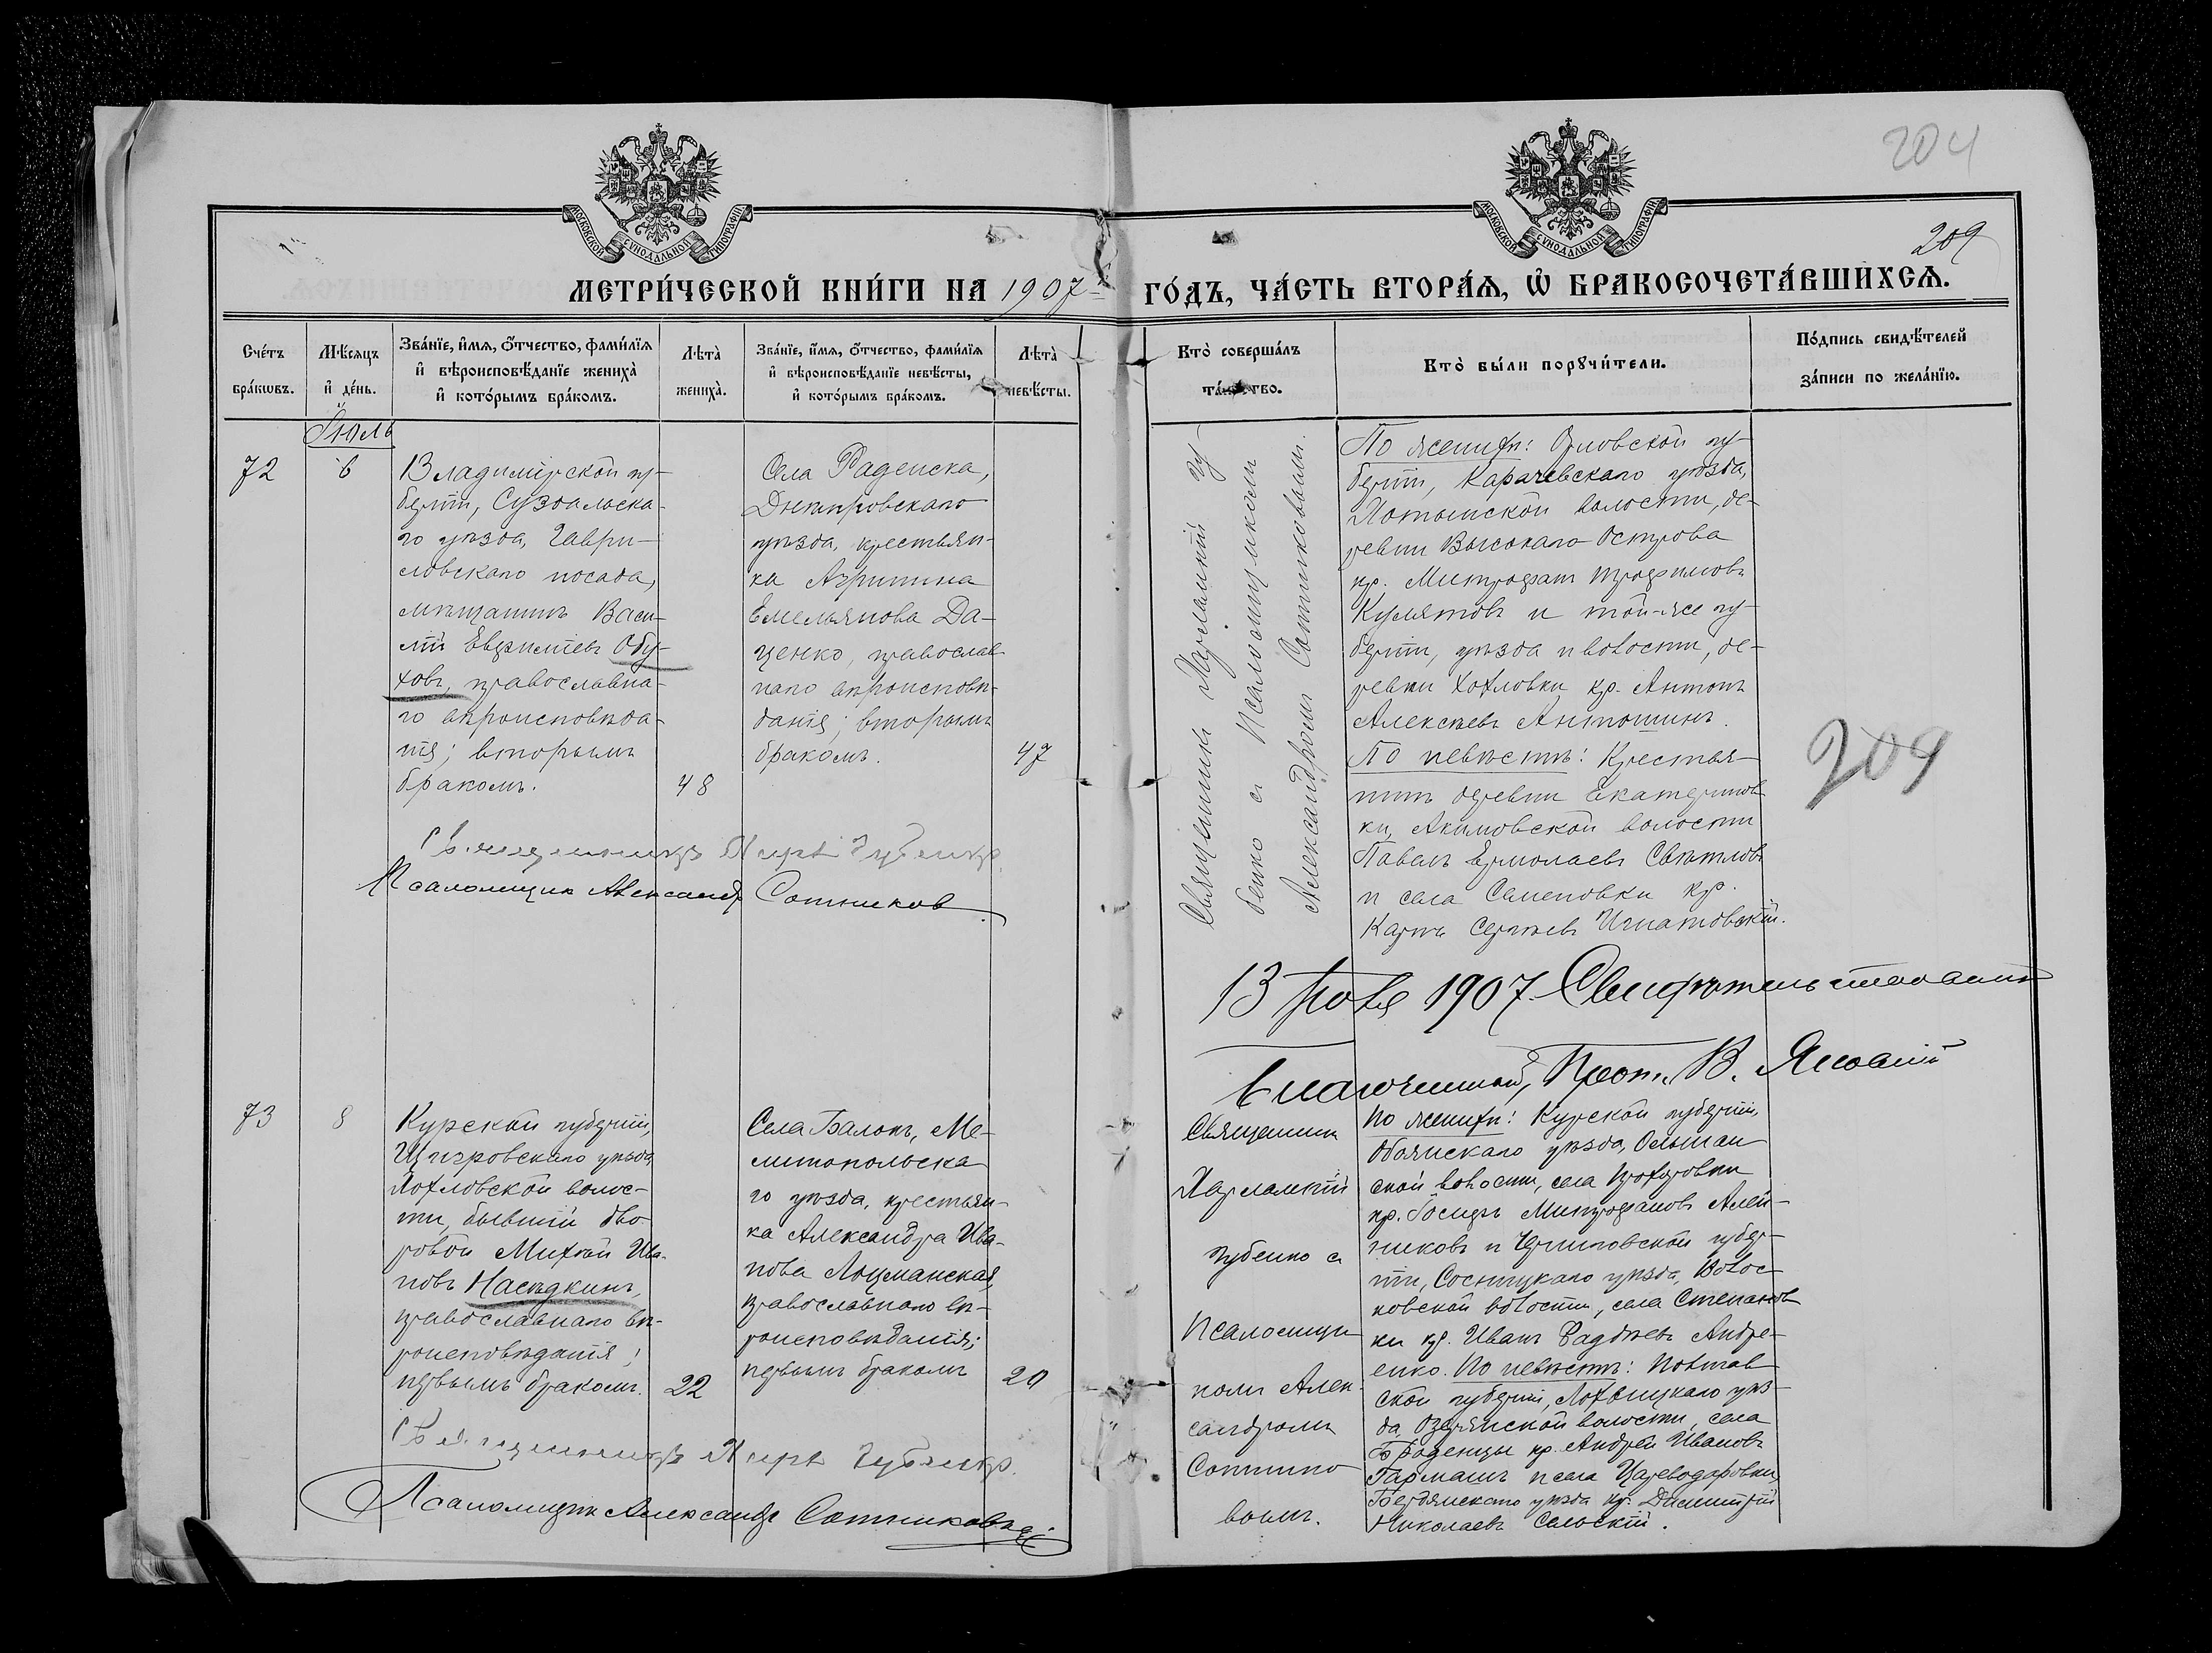 204
209
МОСКОВСКОЙ СУНОДАЛЬНОЙ ТИПОГРАФІИ
МОСКОВСКОЙ СУНОДАЛЬНОЙ ТИПОГРАФІИ
МЕТРИ́ЧЕСКОЙ КНИ́ГИ НА 1907 ГО́ДЪ, ЧА́СТЬ ВТОРА́Ѧ, Ѡ БРАКОСОЧЕТА́ВШИХСѦ.
Сче́тъ бра́кѡвъ.
Мѣ́сяцъ и де́нь.
Зва́нїе, и́мѧ, о́тчество, фами́лїѧ и вѣроисповѣ́данїе жениха̀ и кото́рымъ бра́комъ.
Лѣта̀ жениха̀.
Зва́нїе, и́мѧ, о́тчество, фами́лїѧ и вѣроисповѣ́данїе невѣ́сты, и кото́рымъ бра́комъ.
Лѣта̀ невѣ́сты.
Кто̀ соверша́лъ та́инство.
Кто̀ бы́ли порꙋчи́тели.
По́дпись свидѣ́телей за́писи по жела́нїю.
Іюль
72
6
Владимірской гу-
берніи, Суздальска-
го уѣзда, Гаври-
ловскаго посада,
мѣщанинъ Васи-
лій Евфиміевъ Обу-
ховъ, православна-
го вѣроисповѣда-
нія; вторымъ
бракомъ.
48
Села Раденска,
Днѣпровскаго
уѣзда, крестьян-
ка Агрипина
Емельянова Да-
ценко, православ
наго вѣроисповѣ-
данія; вторымъ
бракомъ.
47
Священникъ Харлампій Гу-
бенко съ Псаломщикомъ
Александромъ Сотниковымъ.
По женихѣ: Орловской гу-
берніи, Карачевскаго уѣзда,
Хотынской волости, де-
ревни Высокаго Острова
кр. Митрофанъ Трофимовъ
Кулятовъ и той-же гу-
берніи, уѣзда и волости, де-
ревни Хотловки кр. Антонъ
Алексѣевъ Антошинъ.
По невѣстѣ: Крестья-
нинъ деревни Екатеринов
ки, Акимовской волости
Павелъ Ермолаевъ Свѣтловъ
и села Семеновки кр.
Карпъ Сергѣевъ Игнатовскій.
209
Священникъ Харл. Губенко.
Псаломщик Александр Сотников
13 Іюля 1907. Свидѣтельствовалъ
Благочинный, Прот. В.
73
8
Курской губерніи,
Щигровскаго уѣзда
Хохловской волос-
ти, бывшій дво-
ровой Михаил Ива-
новъ Насѣдкинъ,
православнаго вѣ-
роисповѣданія;
первымъ бракомъ.
22
Села Балокъ, Ме-
литопольска
го уѣзда, крестьян-
ка Александра Ива-
нова Лоцманская,
православнаго вѣ-
роисповѣданія;
первымъ бракомъ
20
Священникъ
Харлампій
Губенко съ
Псаломщи
комъ Алек-
сандромъ
Сотнико
вымъ.
По женихѣ: Курской губерніи,
Обоянскаго уѣзда, Ольшан
ской волости, села Прохоровки
кр. Іосифъ Митрофановъ Алей-
никовъ и Черниговской губер-
ніи, Сосницкаго уѣзда, Волос-
ковской волости, села Степанов
ки кр. Иванъ Фаддѣевъ Андре-
енко. По невѣстѣ: Полтав
ской губерніи, Лохвицкаго уѣз-
да, Озерянской волости, села
Броденцы кр. Андрей Ивановъ
Гармашъ и села Цареводаровки
Бердянскаго уѣзда кр. Димитрій
Николаевъ Сельскій.
Священникъ Харл. Губенко.
Псаломщикъ Александръ Сотниковъ